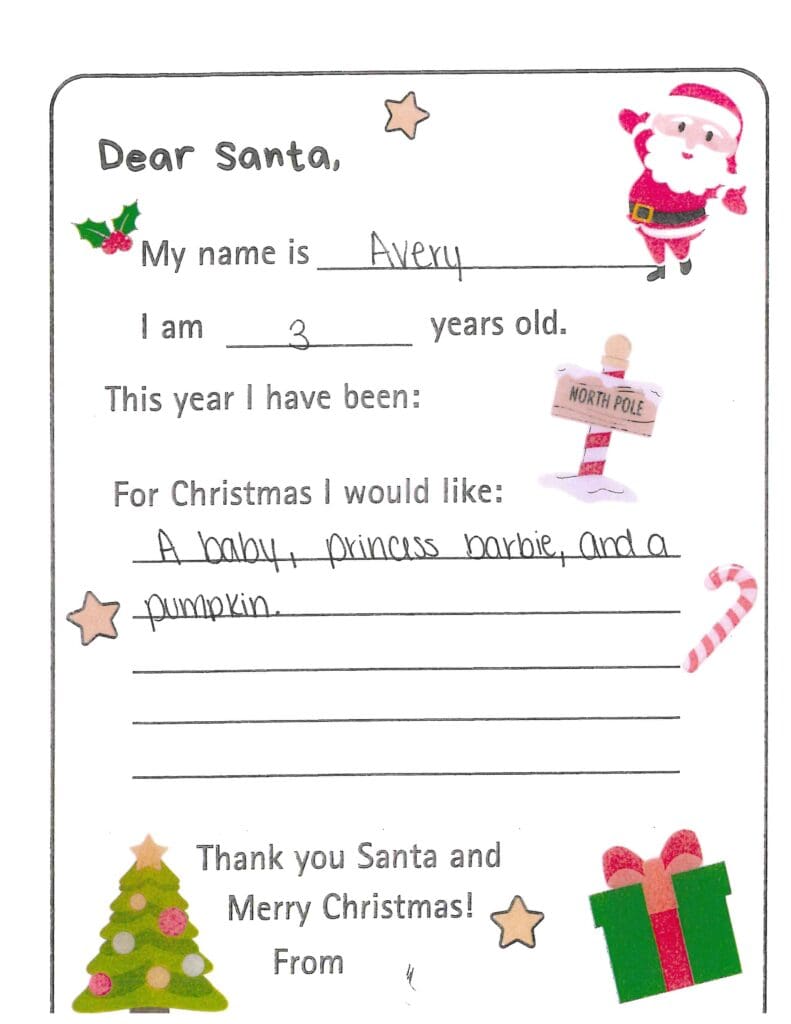 Dear Santa,
My name is Avery
I am 3 years old.
This year I have been:
NORTH POLE
For Christmas I would like:
A baby, princess barbie, and a
pumpkin.
Thank you Santa and
Merry Christmas!
From